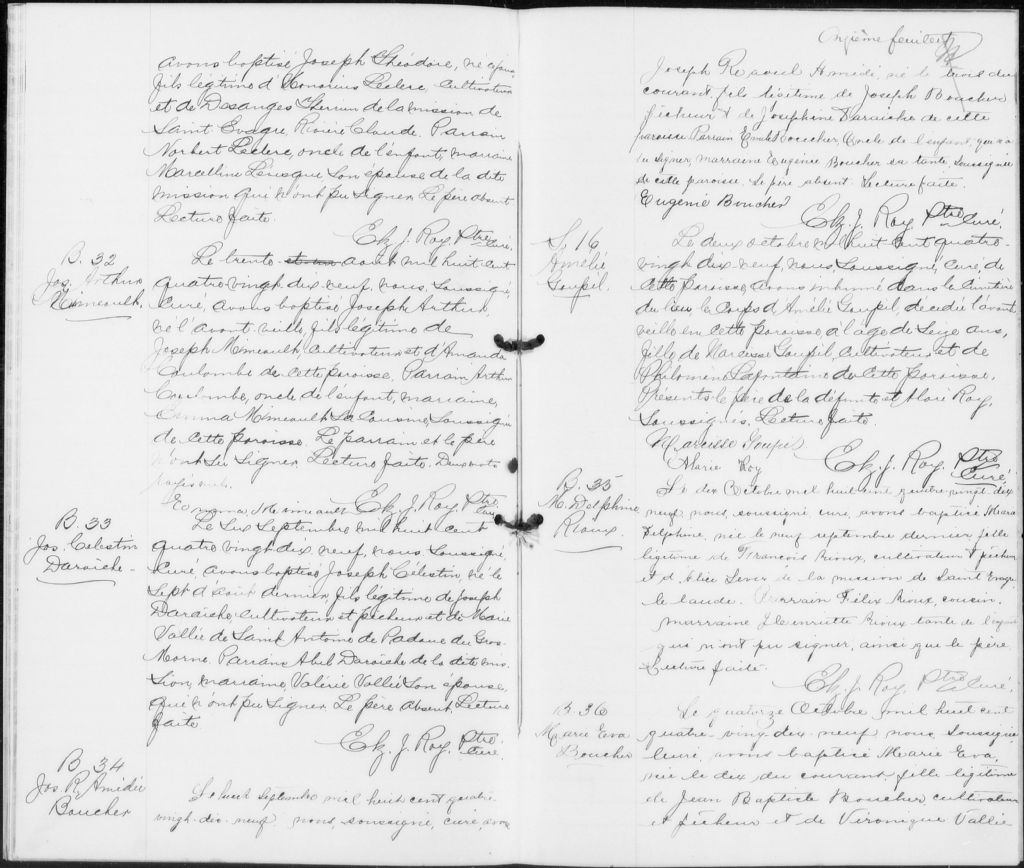 avons baptisé Joseph Théodore, né
fils légitime d'Honorius Leclerc, Cultivateur
et de Desanges Therrien de la mission de
Saint Evagre, Rivière Claude. Parrain
Norbert Leclerc, oncle de l'enfant, marraine
Marcelline Lévesque son épouse de la dite
mission qui n'ont pu signer. Le père absent
Lecture faite.
Elz. J. Roy Ptre
Curé.
B. 32
Jos. Arthur
Mimeault.
Le trente et un aout mil huit cent
quatre vingt dix neuf, nous, soussigné
Curé, avons baptisé Joseph Arthur,
né l'avant veille, fils légitime de
Joseph Mimeault, Cultivateur et d'Amanda
Coulombe de cette paroisse. Parrain Arthur
Coulombe, oncle de l'enfant, marraine,
Emma Mimeault sa Cousine, soussignée
de cette paroisse. Le parrain et le père
n'ont su signer. Lecture faite. Deux mots
rayés nuls.
Emma Mimeault Elz. J. Roy Ptre
Curé
B. 33
Jos. Celestin
Daraiche
Le six Septembre mil huit cent
quatre vingt dix neuf, nous, soussigné
Curé, avons baptisé Joseph Célestin, né le
sept d'août dernier, fils légitime de Joseph
Daraiche, Cultivateur et pêcheur et de Marie
Vallée de Saint Antoine de Padoue du Gros
Morne. Parrain Abel Daraiche de la dite mis
sion, marraine, Valérie Vallée son épouse,
qui n'ont pu signer. Le père absent. Lecture
faite.
Elz. J. Roy, Ptre
Curé
B. 34
Jos. R. Amédée
Boucher
Le huit Septembre mil huit cent quatre
vingt-dix-neuf nous, soussigné, curé, avons
Onzième feuillet
Joseph Amédé, né le trois du
courant, fils légitime de Joseph Boucher
pêcheur & de Joséphine Daraiche de cette
paroisse. Parrain Boucher, Oncle de l'enfant, qui n'a
su signer, marraine Eugénie Boucher sa tante, soussignée
de cette paroisse. Le père absent. Lecture faite.
Eugenie Boucher
Elz. J. Roy Ptre
Curé.
S. 16
Amélie
Goupil.
Le deux octobre mil huit cent quatre-
vingt dix neuf, nous, soussigné, Curé, de
cette paroisse, avons inhumé dans le Cimetière
du lieu le Corps d'Amélie Goupil, décédée l'avant
veille en cette paroisse à l'age de seize ans,
fille de Narcisse Goupil, Cultivateur et de
Philomène Lafontaine de cette paroisse.
Presents le père de la defunte et Roy,
soussignés. Lecture faite.
Narcisse Goupil
Marie Roy Elz. J. Roy. Ptre
Curé
B. 35
M. Delphine
Rioux.
Le dix Octobre mil huit cent quatre vingt dix
neuf, nous, soussigné curé, avons baptisé Marie
Delphine, née le neuf septembre dernier, fille
légitime de François Rioux, cultivateur & pêcheur
et d'Alice de la mission de Saint Evagre
Parrain Félix Rioux, cousin,
marraine Henriette Rioux tante de l'enfant
qui n'ont pu signer, ainsi que le père.
Lecture faite.
Elz. J. Roy, Ptre
Curé.
B. 36
Marie Eva
Boucher
Le quatorze Octobre mil huit cent
quatre-vingt-dix neuf nous, soussigné
Curé, avons baptisé Marie Eva,
née le dix du courant fille légitime
de Jean Baptiste Boucher cultivateur
et pêcheur et de Veronique Vallée